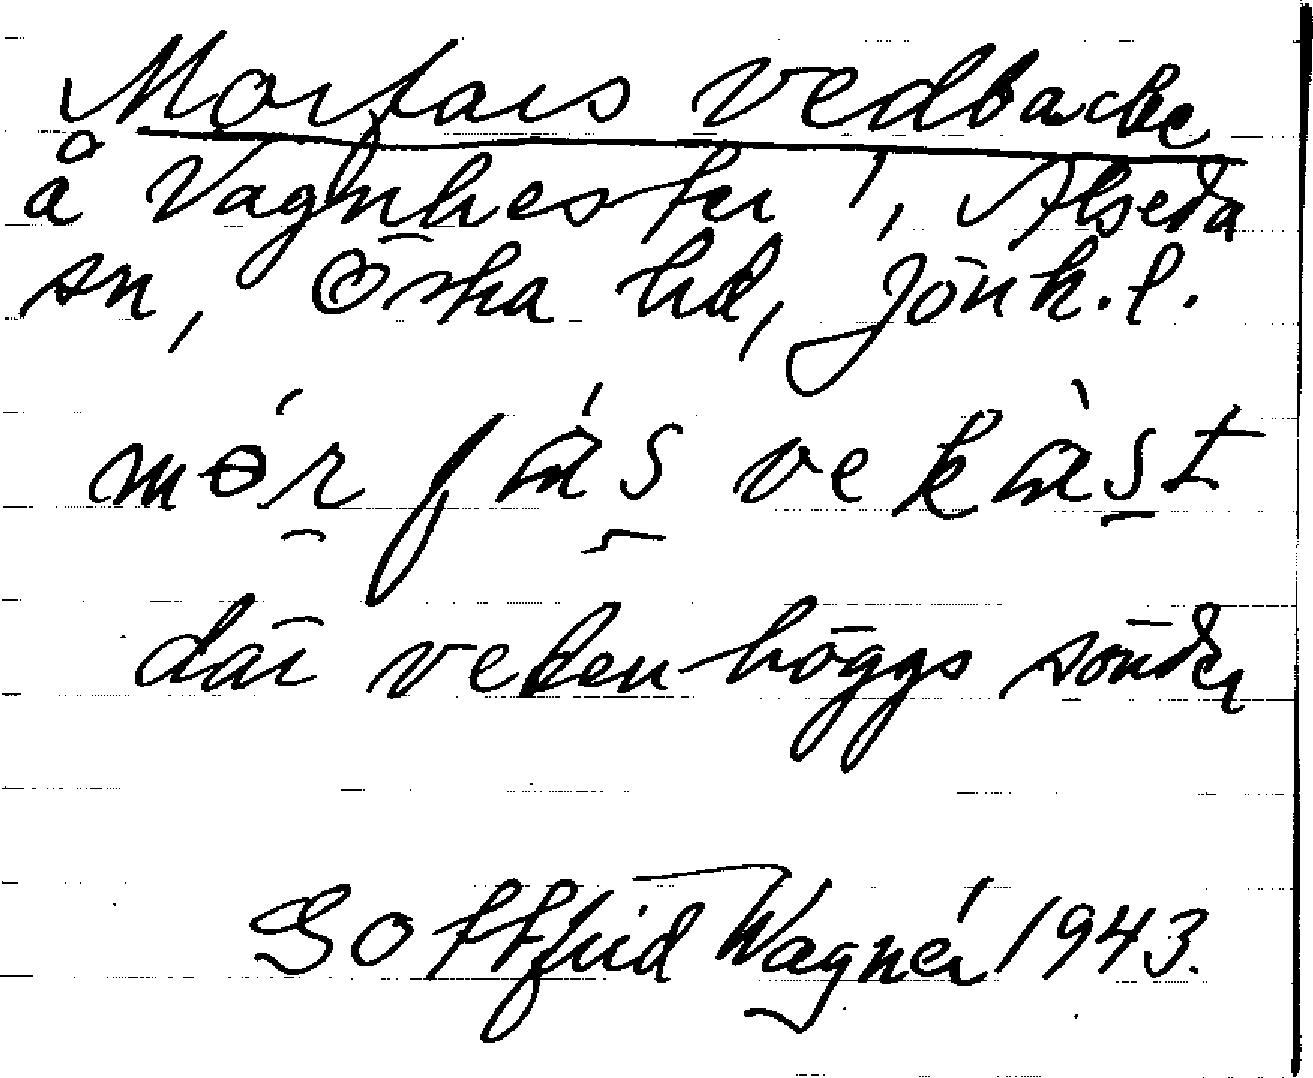 Morfars vedbacke
å Vagnhester 1, Alseda
sn, Östra hd, Jönk. l.
mɵ́r fás ve kàst
där veden höggs sönder
Gottfrid Wagnér 1943.